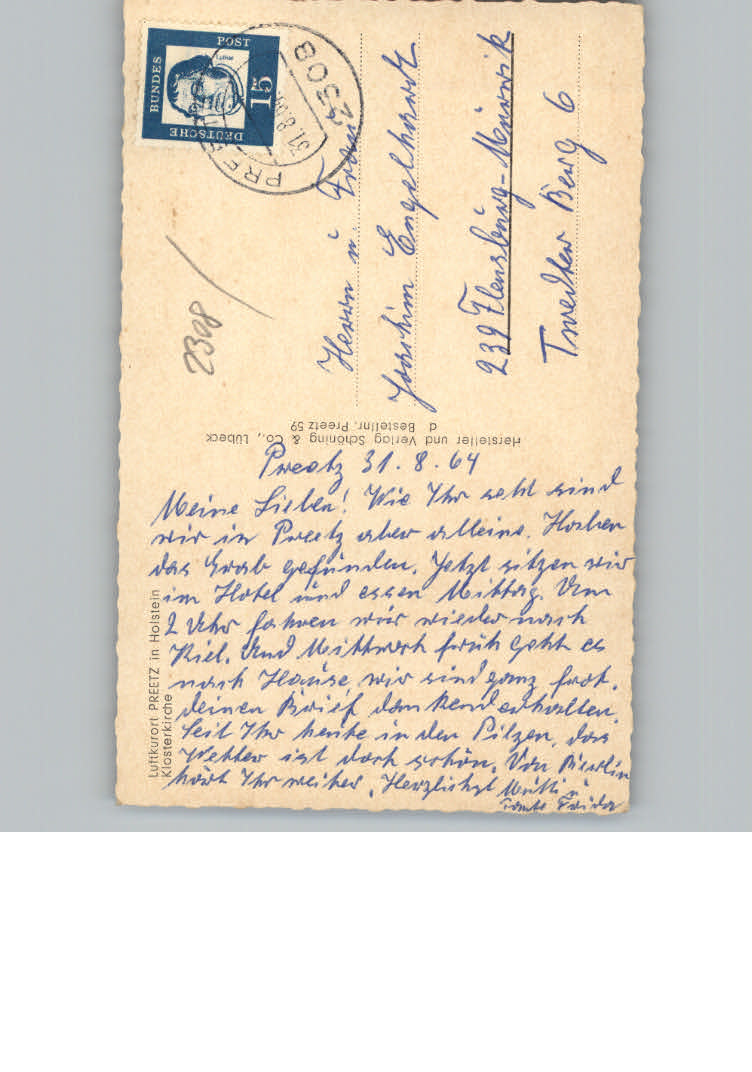 Luftkurort PREETZ in Holstein
Klosterkirche
Preetz 31.8.64
Meine Lieben! Wie Ihr seht sind
wir in Preetz aber alleine. Haben
das Grab gefunden. Jetzt sitzen wir
im Hotel und essen Mittag. Um
2 Uhr fahren wir wieder nach
Kiel. Und Mittwoch früh geht es
nach Hause wir sind ganz froh.
deinen Brief dankend erhalten.
Seit Ihr heute in den Pilzen, das
Wetter ist doch schön. Von Berlin
hört Ihr weiter. Herzlichst Mutti u
Tante Frida
Hersteller und Verlag Schöning & Co., Lübeck
d Bestellnr. Preetz 59
DEUTSCHE
BUNDES
POST
15
2308
PREETZ
31.8.64
2308
Herrn u. Frau
Joachim Engelhardt
239 Flensburg-Mürwik
Twedter Berg 6